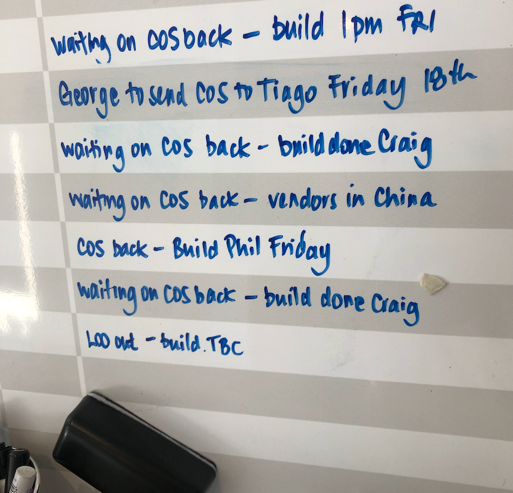 waiting on COS back - build 1pm FRI
George to send COS to Tiago Friday 18th
waiting on COS back - build done Craig
waiting on COS back - vendors in China
COS back - Build Phil Friday
waiting on COS back - build done Craig
LOO out - build. TBC